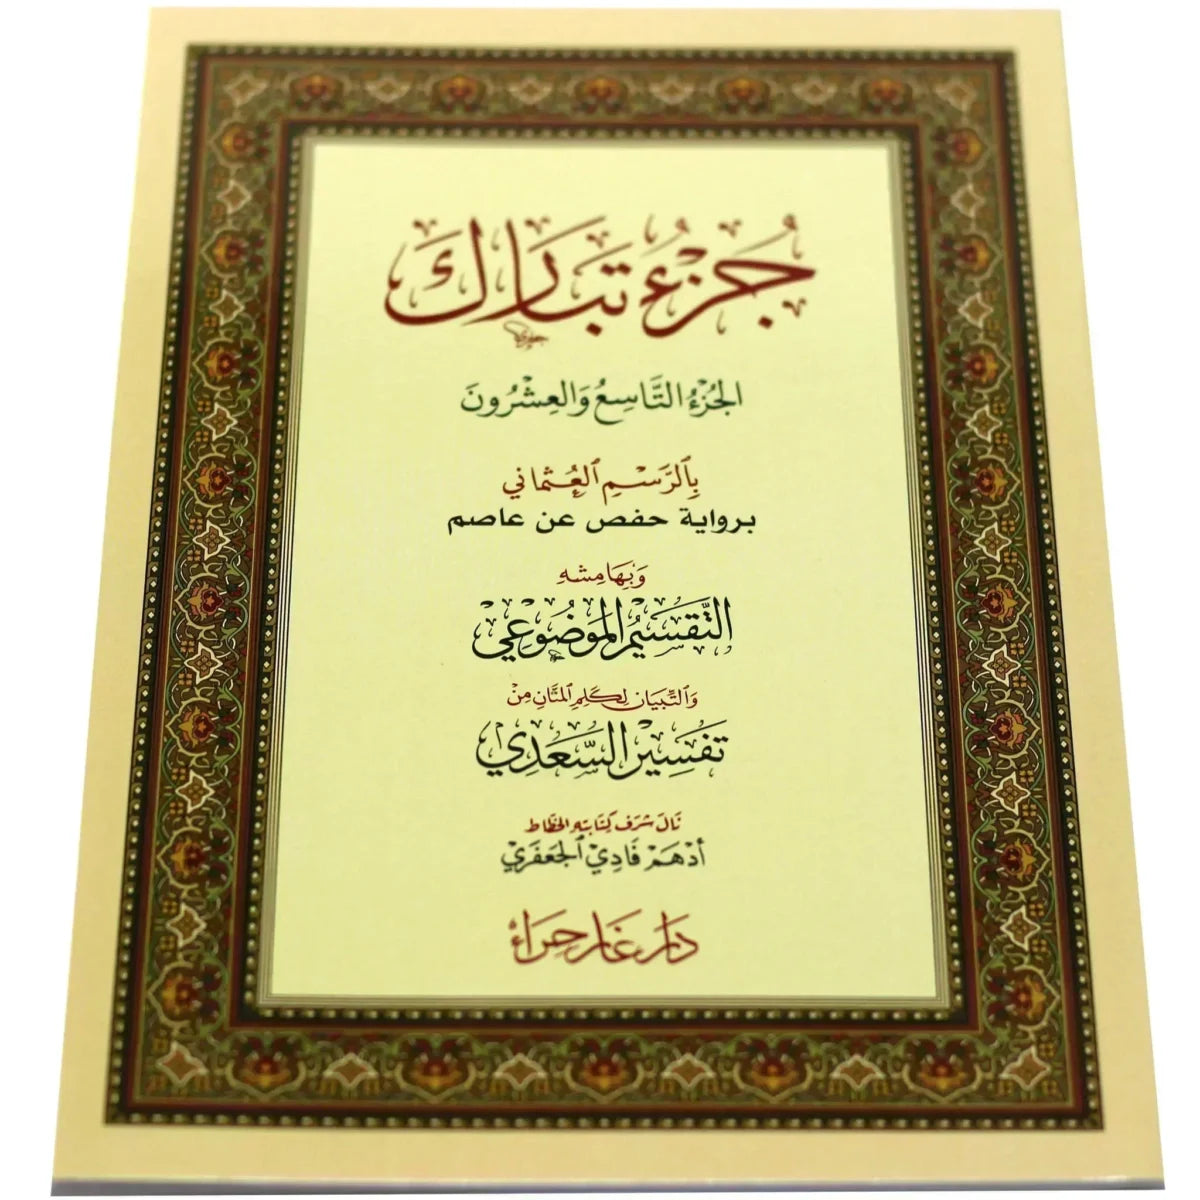 جُزْءُ تَبَارَكَ
الجُزْءُ التَّاسِعُ وَالعِشْرُونَ
بِالرَّسْمِ العُثْمَانِي
برواية حفص عن عاصم
وَبِهَامِشِهِ
التَّقْسِيمُ المَوْضُوعِيّ
وَالتِّبْيَان لِكَلِمِ المَنَّانِ مِنْ
تَفْسِيرِ السَّعْدِي
نَالَ شَرَفَ كِتَابَتِهِ الخَطَّاط
أَدْهَمْ فَادِي الجَعْفَرِي
دَار غَارِ حِرَاء